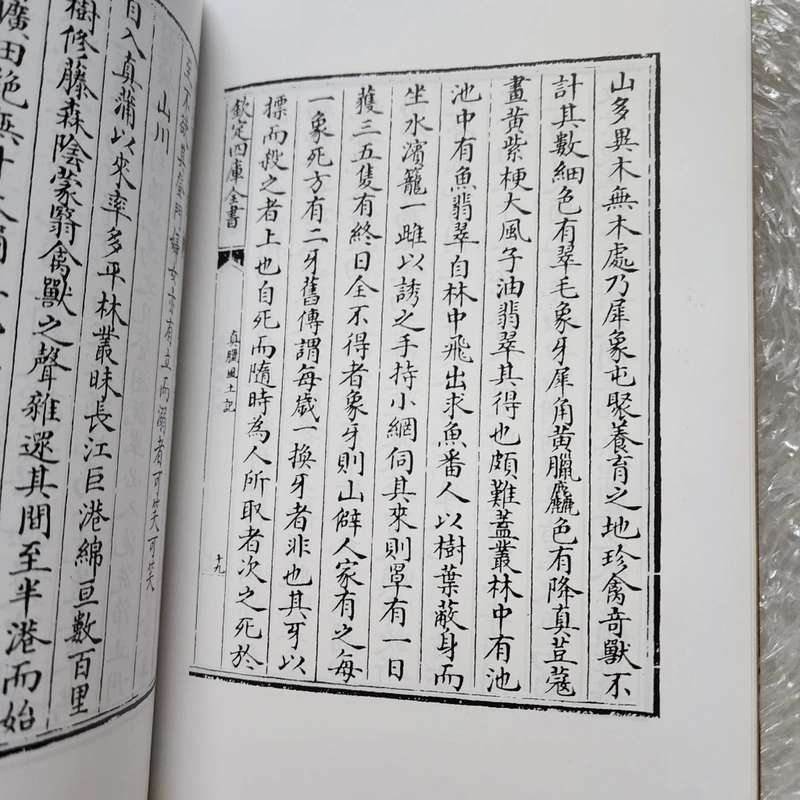 山多異木無木處乃犀象屯聚養育之地珍禽奇獸不
計其數細色有翠毛象牙犀角黃臘麤色有降真荳蔻
畫黃紫梗大風子油翡翠其得也頗難蓋叢林中有池
池中有魚翡翠自林中飛出求魚番人以樹葉蔽身而
坐水濱籠一雌以誘之手持小網伺其來則罩有一日
獲三五隻有終日全不得者象牙則山僻人家有之每
一象死方有二牙舊傳謂每歲一換牙者非也其牙以
標而殺之者上也自死而隨時為人所取者次之死於
欽定四庫全書 真臘風土記 十九
至不 婦女亦有立而溺者可笑可笑
山川
自入真蒲以來率多平林叢昧長江巨港綿亘數百里
樹修藤森陰蒙翳禽獸之聲雜遝其間至半港而始
曠田絕無寸木